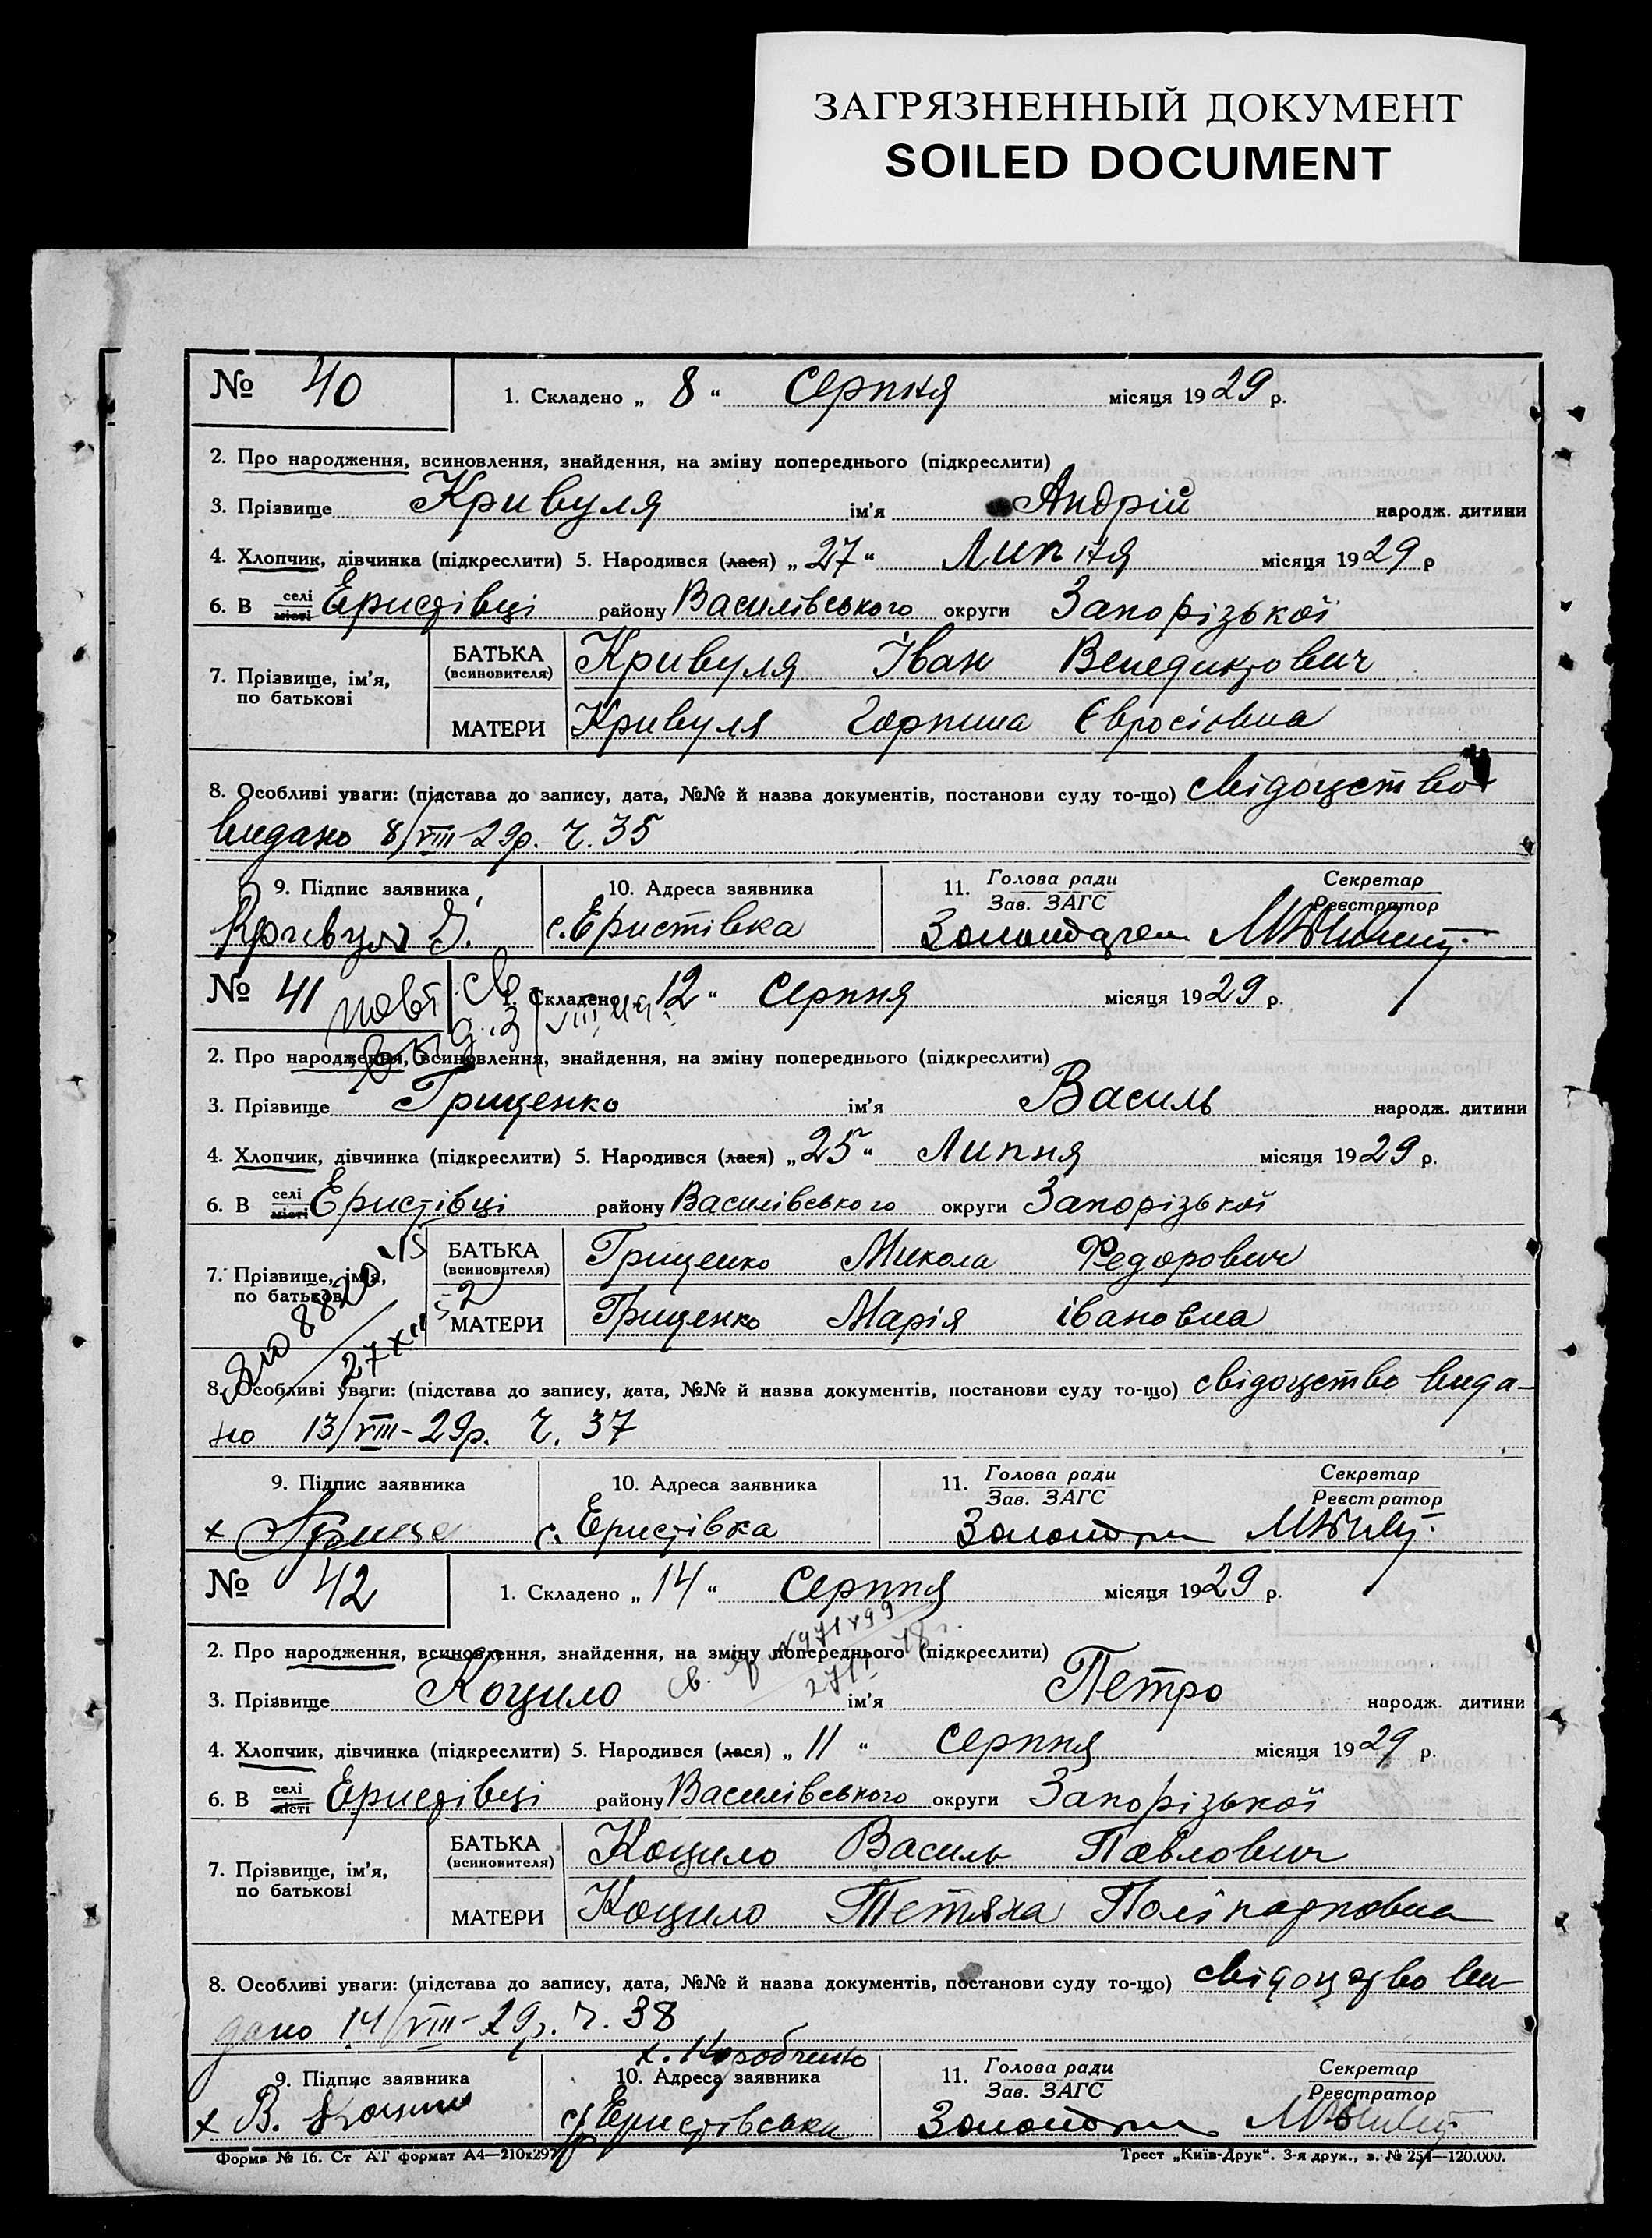 ЗАГРЯЗНЕННЫЙ ДОКУМЕНТ
SOILED DOCUMENT
№ 40 1. Складено „ 8 “ Серпня місяця 1929 р.
2. Про народження, всиновлення, знайдення, на зміну попереднього (підкреслити)
3. Прізвище Кривуля ім'я Андрій народж. дитини
4. Хлопчик, дівчинка (підкреслити) 5. Народився (лася) „ 27 “ Липня місяця 1929 р
6. В селі місті Еристівці району Василівського округи Запорізької
7. Прізвище, ім'я, по батькові
БАТЬКА (всиновителя) Кривуля Іван Венедиктович
МАТЕРИ Кривуля Горпина Євросівна
8. Особливі уваги: (підстава до запису, дата, №№ й назва документів, постанови суду то-що) свідоцтво
видано 8/VIII-29р. Ч. 35
9. Підпис заявника 10. Адреса заявника 11. Голова ради Зав. ЗАГС Секретар Реєстратор
Кривуля І. с. Еристівка
№ 41 1. Складено „ 12 “ Серпня місяця 1929 р.
2. Про народження, всиновлення, знайдення, на зміну попереднього (підкреслити)
3. Прізвище Грищенко ім'я Василь народж. дитини
4. Хлопчик, дівчинка (підкреслити) 5. Народився (лася) „ 25 “ Липня місяця 1929 р.
6. В селі місті Еристівці району Василівського округи Запорізької
7. Прізвище, ім'я, по батькові
БАТЬКА (всиновителя) Грищенко Микола Федорович
МАТЕРИ Грищенко Марія івановна
8. Особливі уваги: (підстава до запису, дата, №№ й назва документів, постанови суду то-що) свідоцтво вида-
но 13/VIII-29р. Ч. 37
9. Підпис заявника 10. Адреса заявника 11. Голова ради Зав. ЗАГС Секретар Реєстратор
х с. Еристівка
№ 42 1. Складено „ 14 “ Серпня місяця 1929 р.
2. Про народження, всиновлення, знайдення, на зміну попереднього (підкреслити)
3. Прізвище Коцило ім'я Петро народж. дитини
4. Хлопчик, дівчинка (підкреслити) 5. Народився (лася) „ 11 “ Серпня місяця 1929 р.
6. В селі місті Еристівці району Василівського округи Запорізької
7. Прізвище, ім'я, по батькові
БАТЬКА (всиновителя) Коцило Василь Павлович
МАТЕРИ Коцило Тетяна Полікарповна
8. Особливі уваги: (підстава до запису, дата, №№ й назва документів, постанови суду то-що) свідоцтво ви-
дано 14/VIII-29р. Ч. 38
9. Підпис заявника 10. Адреса заявника 11. Голова ради Зав. ЗАГС Секретар Реєстратор
х В.
Форма № 16. Ст АГ формат А4—210х297
Трест „Київ-Друк“. 3-я друк., з. № 254—120.000.